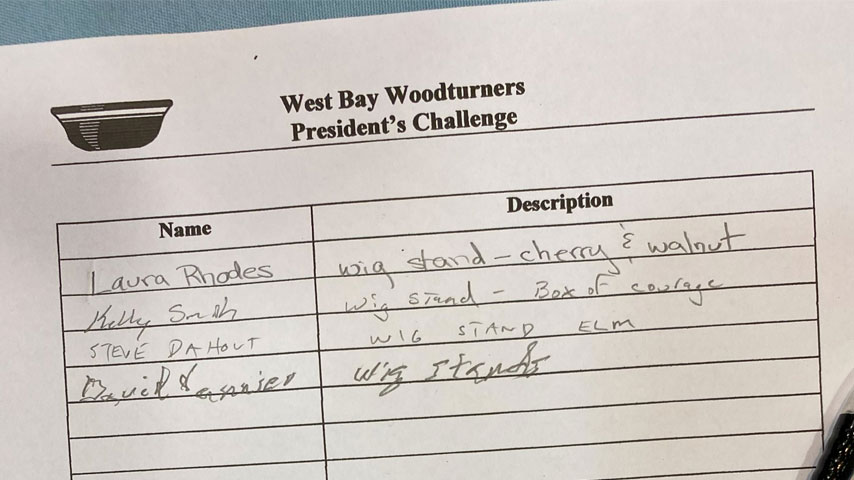 West Bay Woodturners
President's Challenge
Name Description
Laura Rhodes wig stand - cherry & walnut
Kelly Smith Wig Stand - Box of courage
STEVE DAHOUT WIG STAND ELM
David wig stands